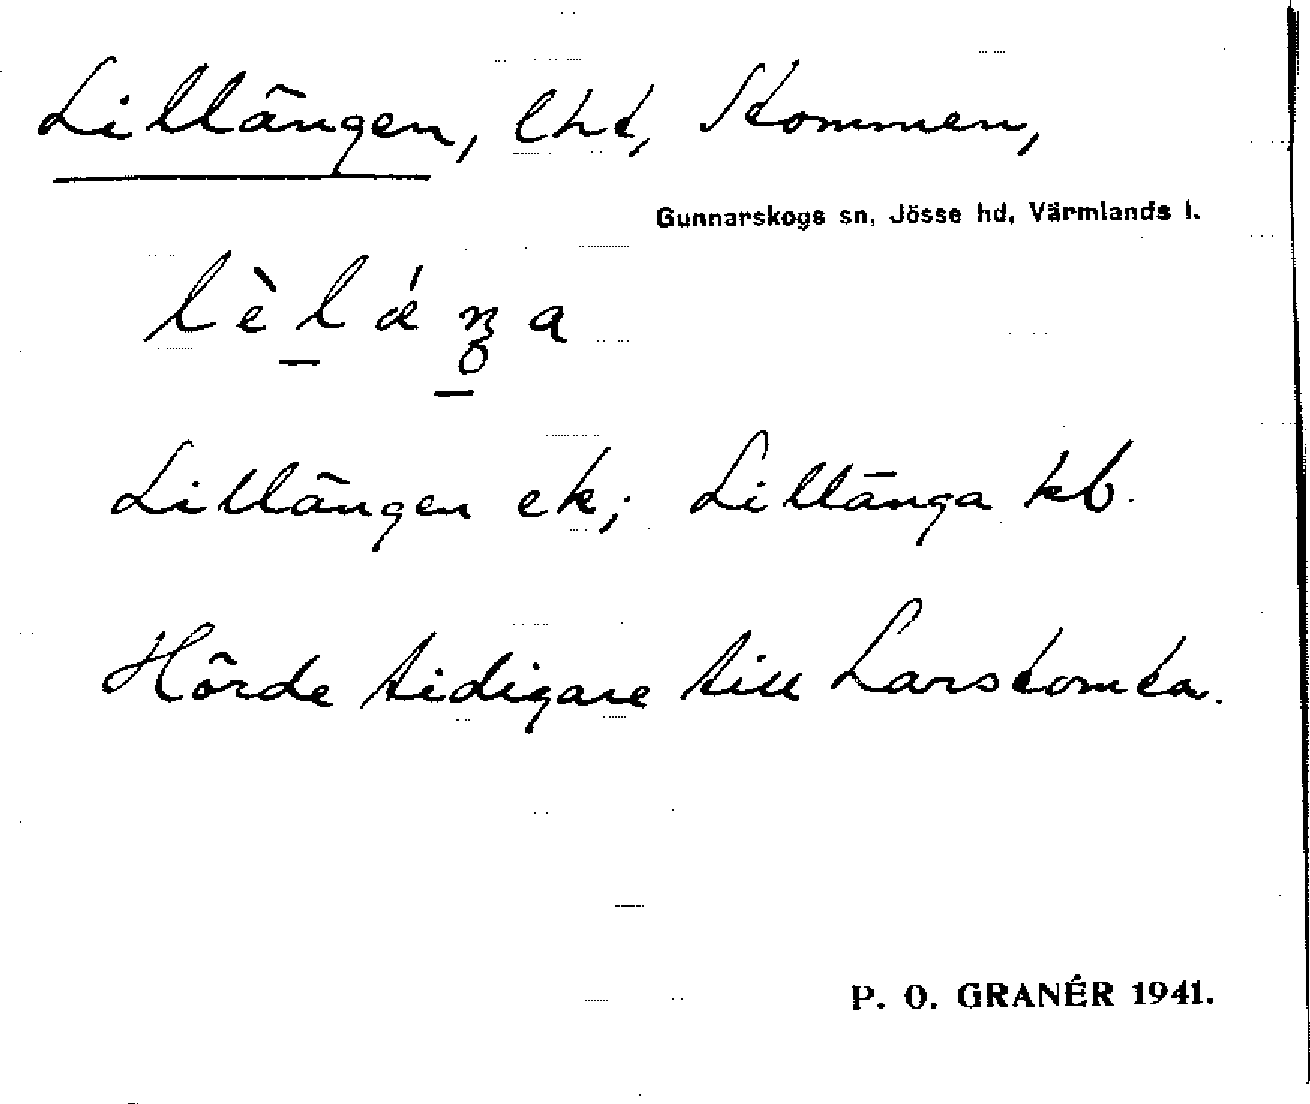 Lillängen, lht, Stommen,
Gunnarskogs sn, Jösse hd, Värmlands l.
Lillängen ek; Lillänga kb.
Hörde tidigare till Larstomta.
P. O. GRANÉR 1941.